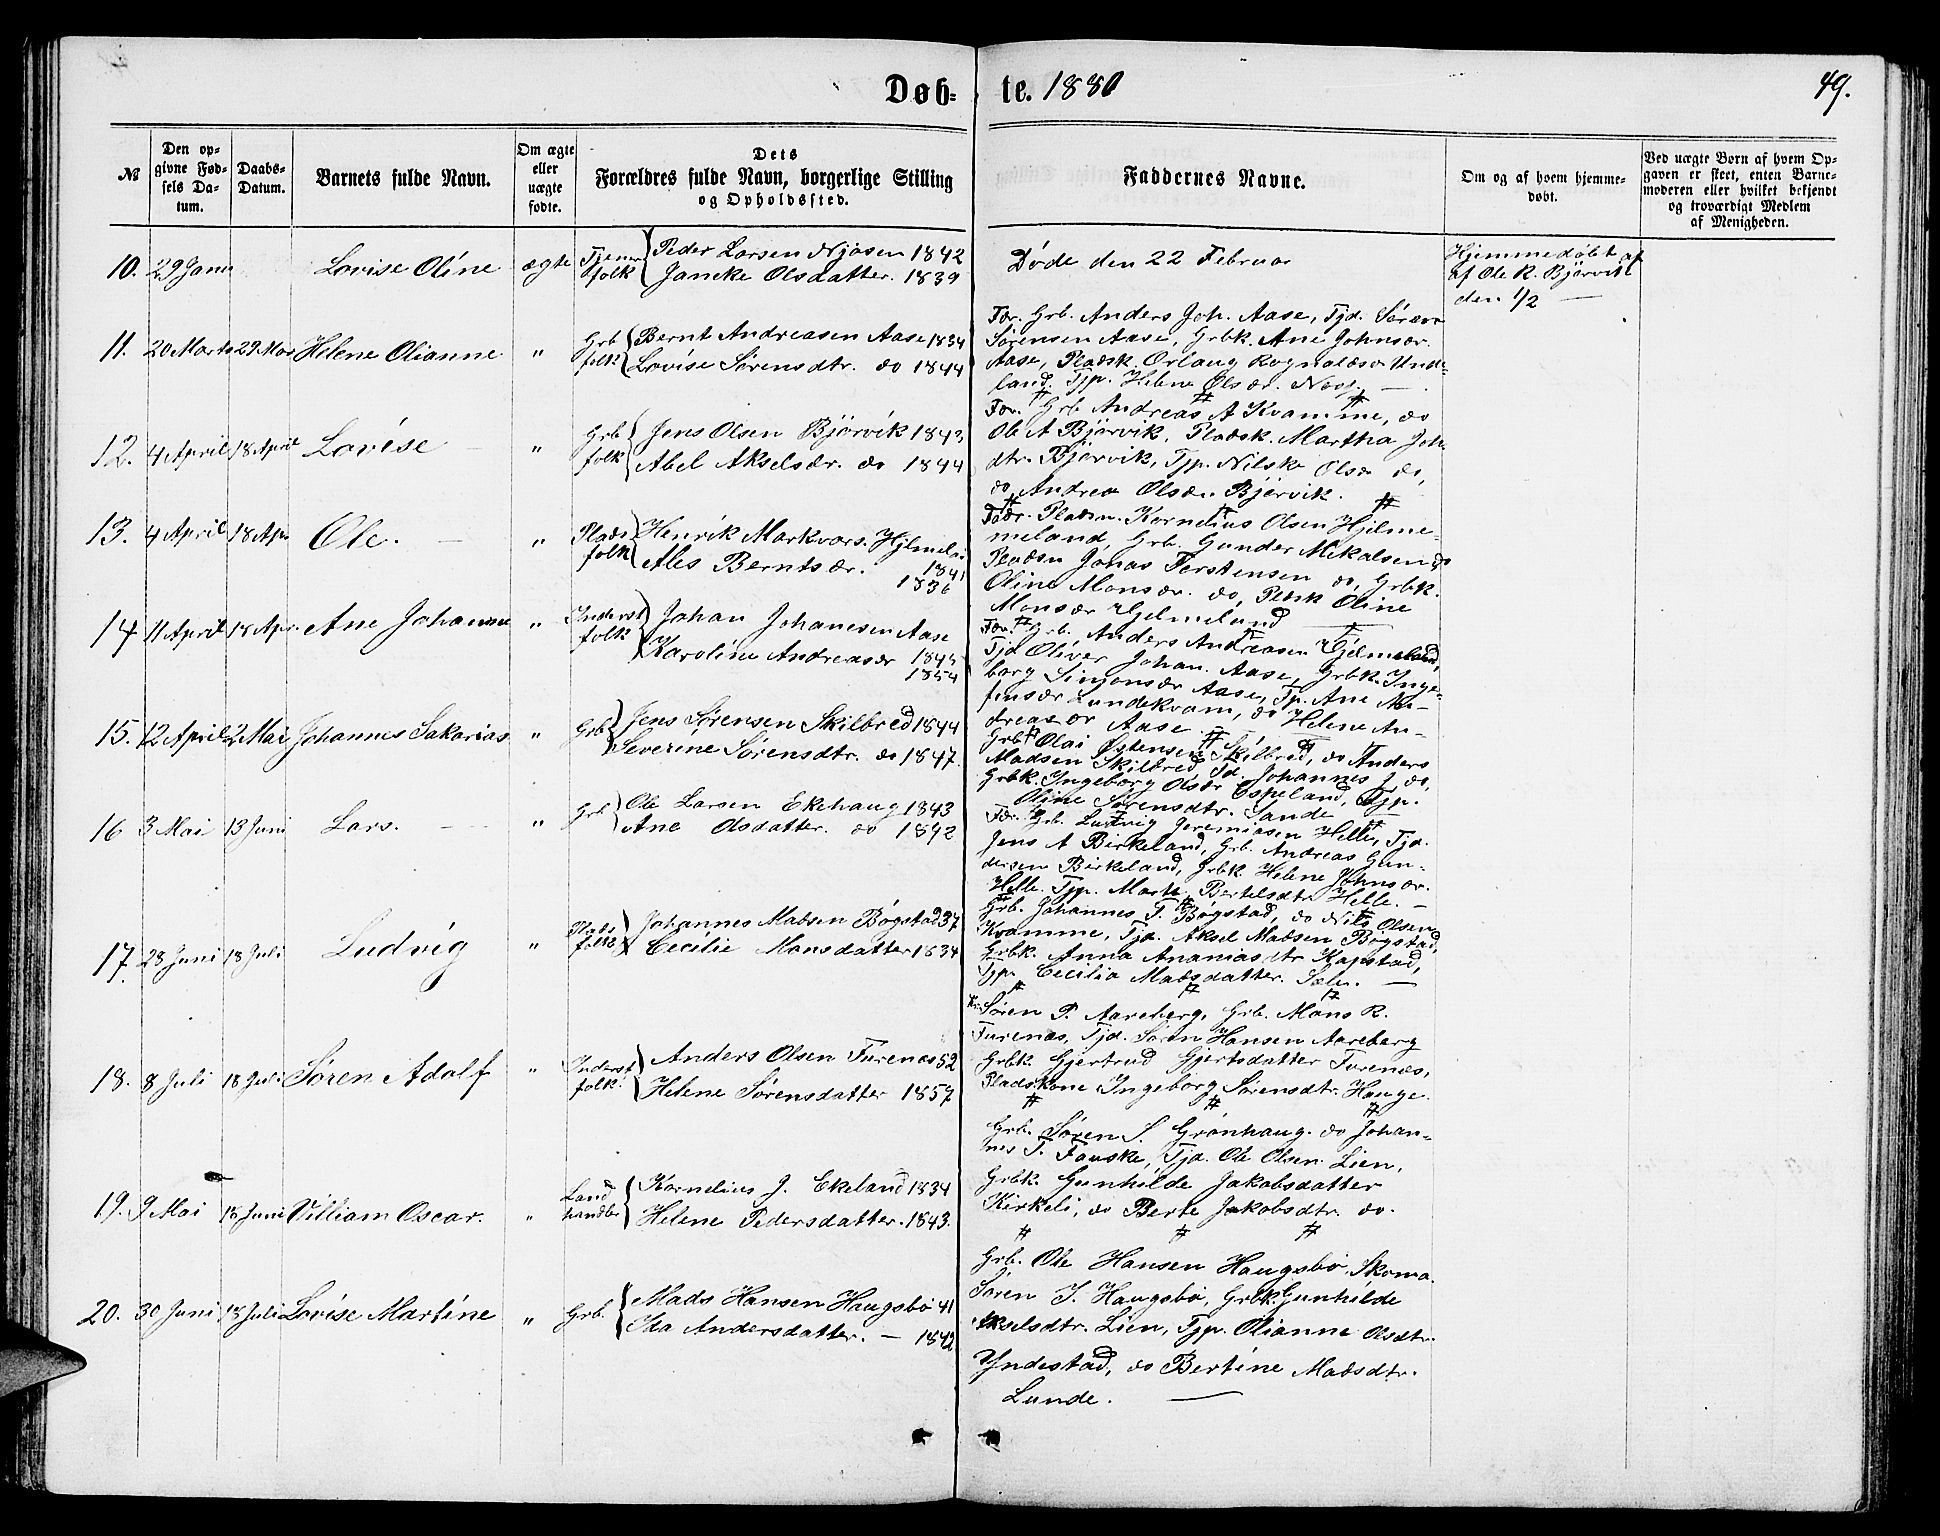 Døb-te. 1880
49.
№
Den opgivne Fødsels Datum.
Daabs-Datum.
Barnets fulde Navn.
Om ægte eller uægte fødte.
Dets Forældres fulde Navn, borgerlige Stilling og Opholdssted.
Faddernes Navne.
Om og af hvem hjemmedøbt.
Ved uægte Børn af hvem Opgaven er skeet, enten Barnemoderen eller hvilket bekjendt og troværdigt Medlem af Menigheden.
10. 29 Janu Lovise Oline ægte Tjener folk Peder Larsen Njøsen 1842
Jancke Olsdatter. 1839
Døde den 22 Februar
Hjemmedøbt af
af Ole R. Bjørvik
den 1/2 —
11. 20 Marts 29 Mar Helene Olianne " Grb folk Bernt Andreasen Aase 1834
Lovise Sørensdtr. do 1844
For. Grb. Anders Joh. Aase, Tjd. Søren
Sørensen Aase, Grbk. Ane Johnsdr.
Aase, Pladsk. Orlaug Rognaldsdr Unde-
land. Tjp. Helene Olsdr. Nesj. —
12. 4 April 18 April Lovise — " Grb folk Jens Olsen Bjørvik 1843
Abel Akselsdr. do 1844
For. Grb Andreas A Kvamme, do
Ole A Bjørvik, Pladsk. Martha Joh-
dtr. Bjørvik, Tjp. Nilske Olsdr do,
do Andrea Olsdr. Bjørvik.
13. 4 April 18 Apr Ole. — " Plads folk Henrik Markvors. Hjelmelan 1841
Ales Berntsdr. 1836
Fadr. Pladsm. Kornelius Olsen Hjelme-
meland, Grb. Gunder Mikalsen do
Pladsm Jonas Torstensen do, Grbk.
Oline Monsdr. do, Pladsk Oline
Monsdr Hjelmeland
14 11 April 18 Apr. Ane Johanne " Inderst folk Johan Johanesen Aase
Karoline Andreasdr 1845
1854
For. Grb. Anders Andreasen Hjelmeland,
Tjd Oliver Johan. Aase, Grbk. Inge-
borg Simonsdr Aase, Tp. Ane Ne-
finsdr Lundekvam, do Helene An-
dreasdr Aase
15. 12 April 2 Mai Johannes Sakarias " Grb Jens Sørensen Skilbred 1844
Severine Sørensdtr. do 1847.
Grb. Olai Østensen Skilbred, do Anders
Madsen Skilbred, Td. Johannes J do,
Grbk. Ingeborg Olsdr Espeland, Tjp.
Oline Sørensdtr. Sande
16 3 Mai 13 Juni Lars. — " Grb Ole Larsen Ekehaug 1843
Ane Olsdatter. do 1842
Fdr. Grb. Ludvig Jeremiasen Helle, Tjd.
Jens A Birkeland, Grb. Andreas Gun-
dersen Birkeland, Grbk. Helene Johnsdr.
Helle. Tjp. Marth. Bertelsdtr Helle. —
17. 28 Juni 18 Juli Ludvig " Plads folk Johannes Madsen Bøgstad 37
Cecilie Monsdatter 1834
Grb. Johannes T. Bøgstad, do Nils Olsen
Kvamme, Tjd. Aksel Madsen Bøgstad,
Grbk. Anna Ananiasdtr Kapstad,
Tjp. Cecilia Madsdatter. Sæle. —
18. 8 Juli 18 Juli Søren Adolf " Inderst folk. Anders Olsen Furenes 52
Helene Sørensdatter 1857
Søren P. Aareberg, Grb. Mons R.
Furenes, Tjd. Søren Hansen Aareberg
Grbk. Gjertrud Gjertsdatter Furenes,
Pladskone Ingeborg Sørensdtr. Hauge.
19. 9 Mai 15 Juni Villiam Oscar. " Land handler Kornelius J. Ekeland 1834
Helene Pedersdatter. 1843.
Grb. Søren S. Grønhaug. do Johan-
nes T. Fauske, Tjd. Ole Olsen Lien,
Grbk. Gunhilde Jakobsdatter
Kirkeli, do Berte Jakobsdtr. do.
20. 30 Juni 18 Juli Lovise Martine " Grb. Mads Hansen Haugsbø 41
Andersdatter. — 1842
Grb. Ole Hansen Haugsbø, Skoma.
Søren J. Haugsbø, Grbk. Gunhilde
Akselsdtr. Lien, Tjp. Olianne Olsdtr.
Yndestad, do Bertine Madsdtr.
Lunde. —